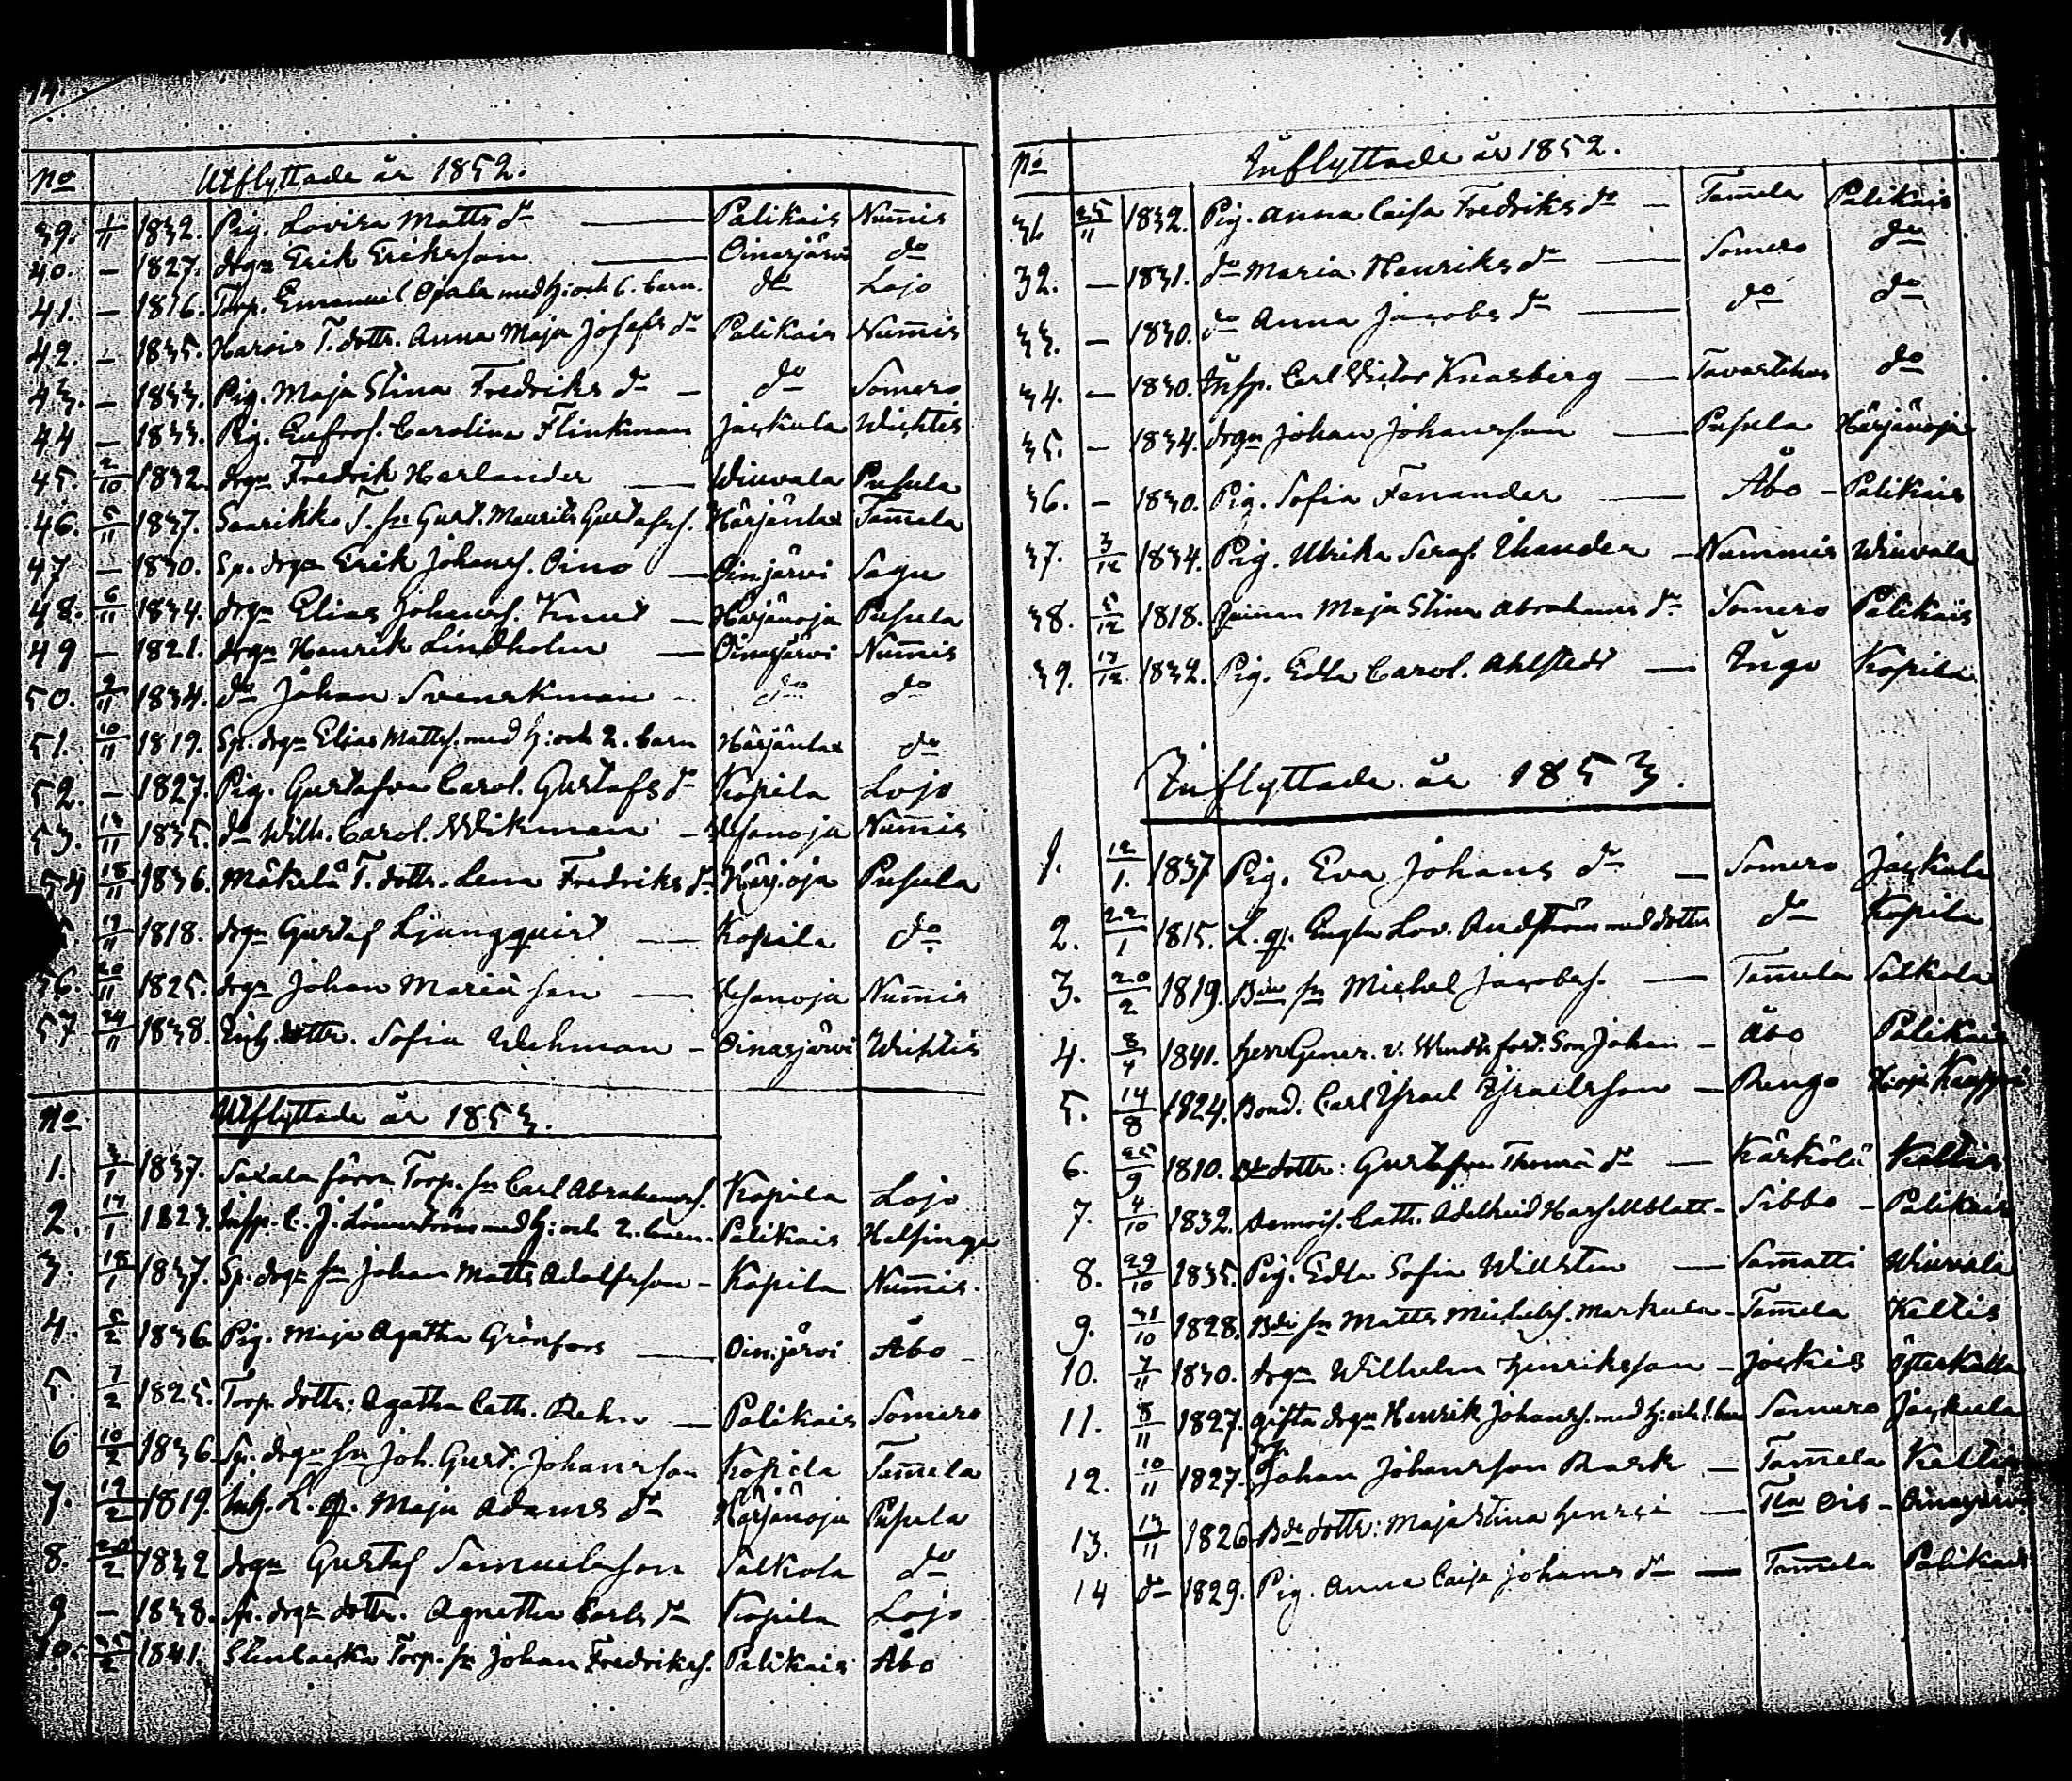 14.
No Utflyttade år 1852.
39. 1/11 1832. Pig. Lovisa Matts dr — Palikais Num̄is
40. — 1827. drgn Erik Eriksson — Oinasjärvi do
41. — 1816. Torp. Emanuel Ojala med h: och 6. barn. do Lojo
42. — 1835. Harois T. dottr. Anna Maja Josefs dr Palikais Num̄is
43. — 1833. Pig. Maja Stina Fredriks dr — do Somero
44 — 1833. Pig. Eufros. Carolina Flinkman Jackula Wichtis
45. 2/10 1832. drgn Fredrik Herlander — Wiuvala Pusula
46. 5/11 1837. Saarikko T. sn Gust. Maurits Gustafss. Härjänlax Tam̄ela
47 — 1830. Sp. drgn Erik Johanss. Oino — Oinjärvi Sagu
48. 6/11 1834. drgn Elias Johanss. Knut — Härjänoja Pusula
49 — 1821. drgn Henrik Lindholm — Oinasjärvi Num̄is
50. 9/11 1834. do Johan Svenskman - do do
51. 10/11 1819. Sp. drgn Elias Mattss. med h: och 2. barn Härjänlax do
52. — 1827. Pig. Gustafva Carol. Gustafs dr Kopila Lojo
53. 13/11 1835. do Wilh. Carol. Wikman - Hsanoja Num̄is
54 18/11 1836. Mäkelä T. dottr. Lena Fredriks dr Härj.oja Pusula
19/11 1818. drgn Gustaf Ljungquist — Kopila do
56. 20/11 1825. drgn Johan Mariäson — Hsanoja Num̄is
57 24/11 1838. Inh. dottr. Sofia Wehman - Oinasjärvi Wichtis
No Utflyttade år 1853.
1. 3/1 1837. Salala förra Torp. sn Carl Abrahamss. Kopila Lojo
2. 17/1 1823. Insp. C. J. Lönnström med h: och 2. barn. Palikais Helsinge
3. 18/1 1837. Sp. drgn sn Johan Matts Adolfsson - Kopila Num̄is.
4. 5/2 1836. Pig. Maja Agatha Grönfors — Oin.järvi Åbo
5. 7/2 1825. Torp. dottr: Agatha Cath. Rehn — Palikais Somero
6 10/2 1836. Sp. drgn sn Joh. Gust. Johansson Kopila Tam̄ela
7. 19/2 1819. Inh. L. q. Maja Adams dr Härjänoja Pusula
8. 20/2 1832 drgn Gustaf Samuelsson Salkola do
9 — 1838. Sp. drgn dottr. Agnetha Carls dr Kopila Lojo
10. 25/2 1841. Stinbacka Torp. sn Johan Fredrikss. Palikais Åbo
No Inflyttade år 1852.
31. 25/11 1832. Pig. Anna Caisa Fredriks dr — Tam̄ela Palikais
32. — 1831. do Maria Henriks dr — Somero do
33. — 1830. do Anna Jacobs dr — do do
34. — 1830. Insp. Carl Victor Knasberg — Tavastehus do
35. — 1834. drgn Johan Johansson — Pusula Härjänoja
36. — 1830. Pig. Sofia Fenander — Åbo - Palikais
37. 3/12 1834. Pig. Ulrika Seraf. Thander — Nummis Wiuvala
38. 5/12 1818. Qvinnan Maja Stina Abrahams dr Somero Palikais
39. 17/12 1832. Pig. Edla Carol. Ahlstedt — Ingo Kopila
Inflyttade år 1853.
1. 12/1. 1837 Pig. Eva Johans dr — Somero Jackula
2. 22/1 1815. L. q. Engla Lov. Andström med dotter do Kopila
3. 20/2 1819. Bde sn Michel Jacobss. — Tam̄ela Salkola
4. 8/4 1841. Herr Gener. v. Wendts fost. Son Johan - Åbo Palikais
5. 14/8 1824. Bond. Carl Israel Israelsson — Rengo
6. 25/9 1810. Bd. dottr: Gustafva Thomä dr — Kärkölä Keltis
7. 4/10 1832. Demois. Cath. Adelheid Harsellblatt - Sibbo - Palikais
8. 29/10 1835. Pig. Edla Sofia Willsten — Sam̄atti Wiuvala
9. 31/10 1828. Bde sn Matts Michelss. Markula - Tam̄ela Keltis
10. 7/11 1830. drgn Wilhelm Henriksson - Jockis Ytterkulla
11. 8/11 1827. gifta drgn Henrik Johanss. med h: och 1. barn Somero Jackula
12. 10/11 1827. drg. Johan Johansson Rask — Tam̄ela Keltis
13. 13/11 1826. Bde dottr: Maja Stina Henrici — Tla Ois - Oinasjärvi
14 do 1829. Pig. Anna Caisa Johans dr — Tam̄ela Palikais